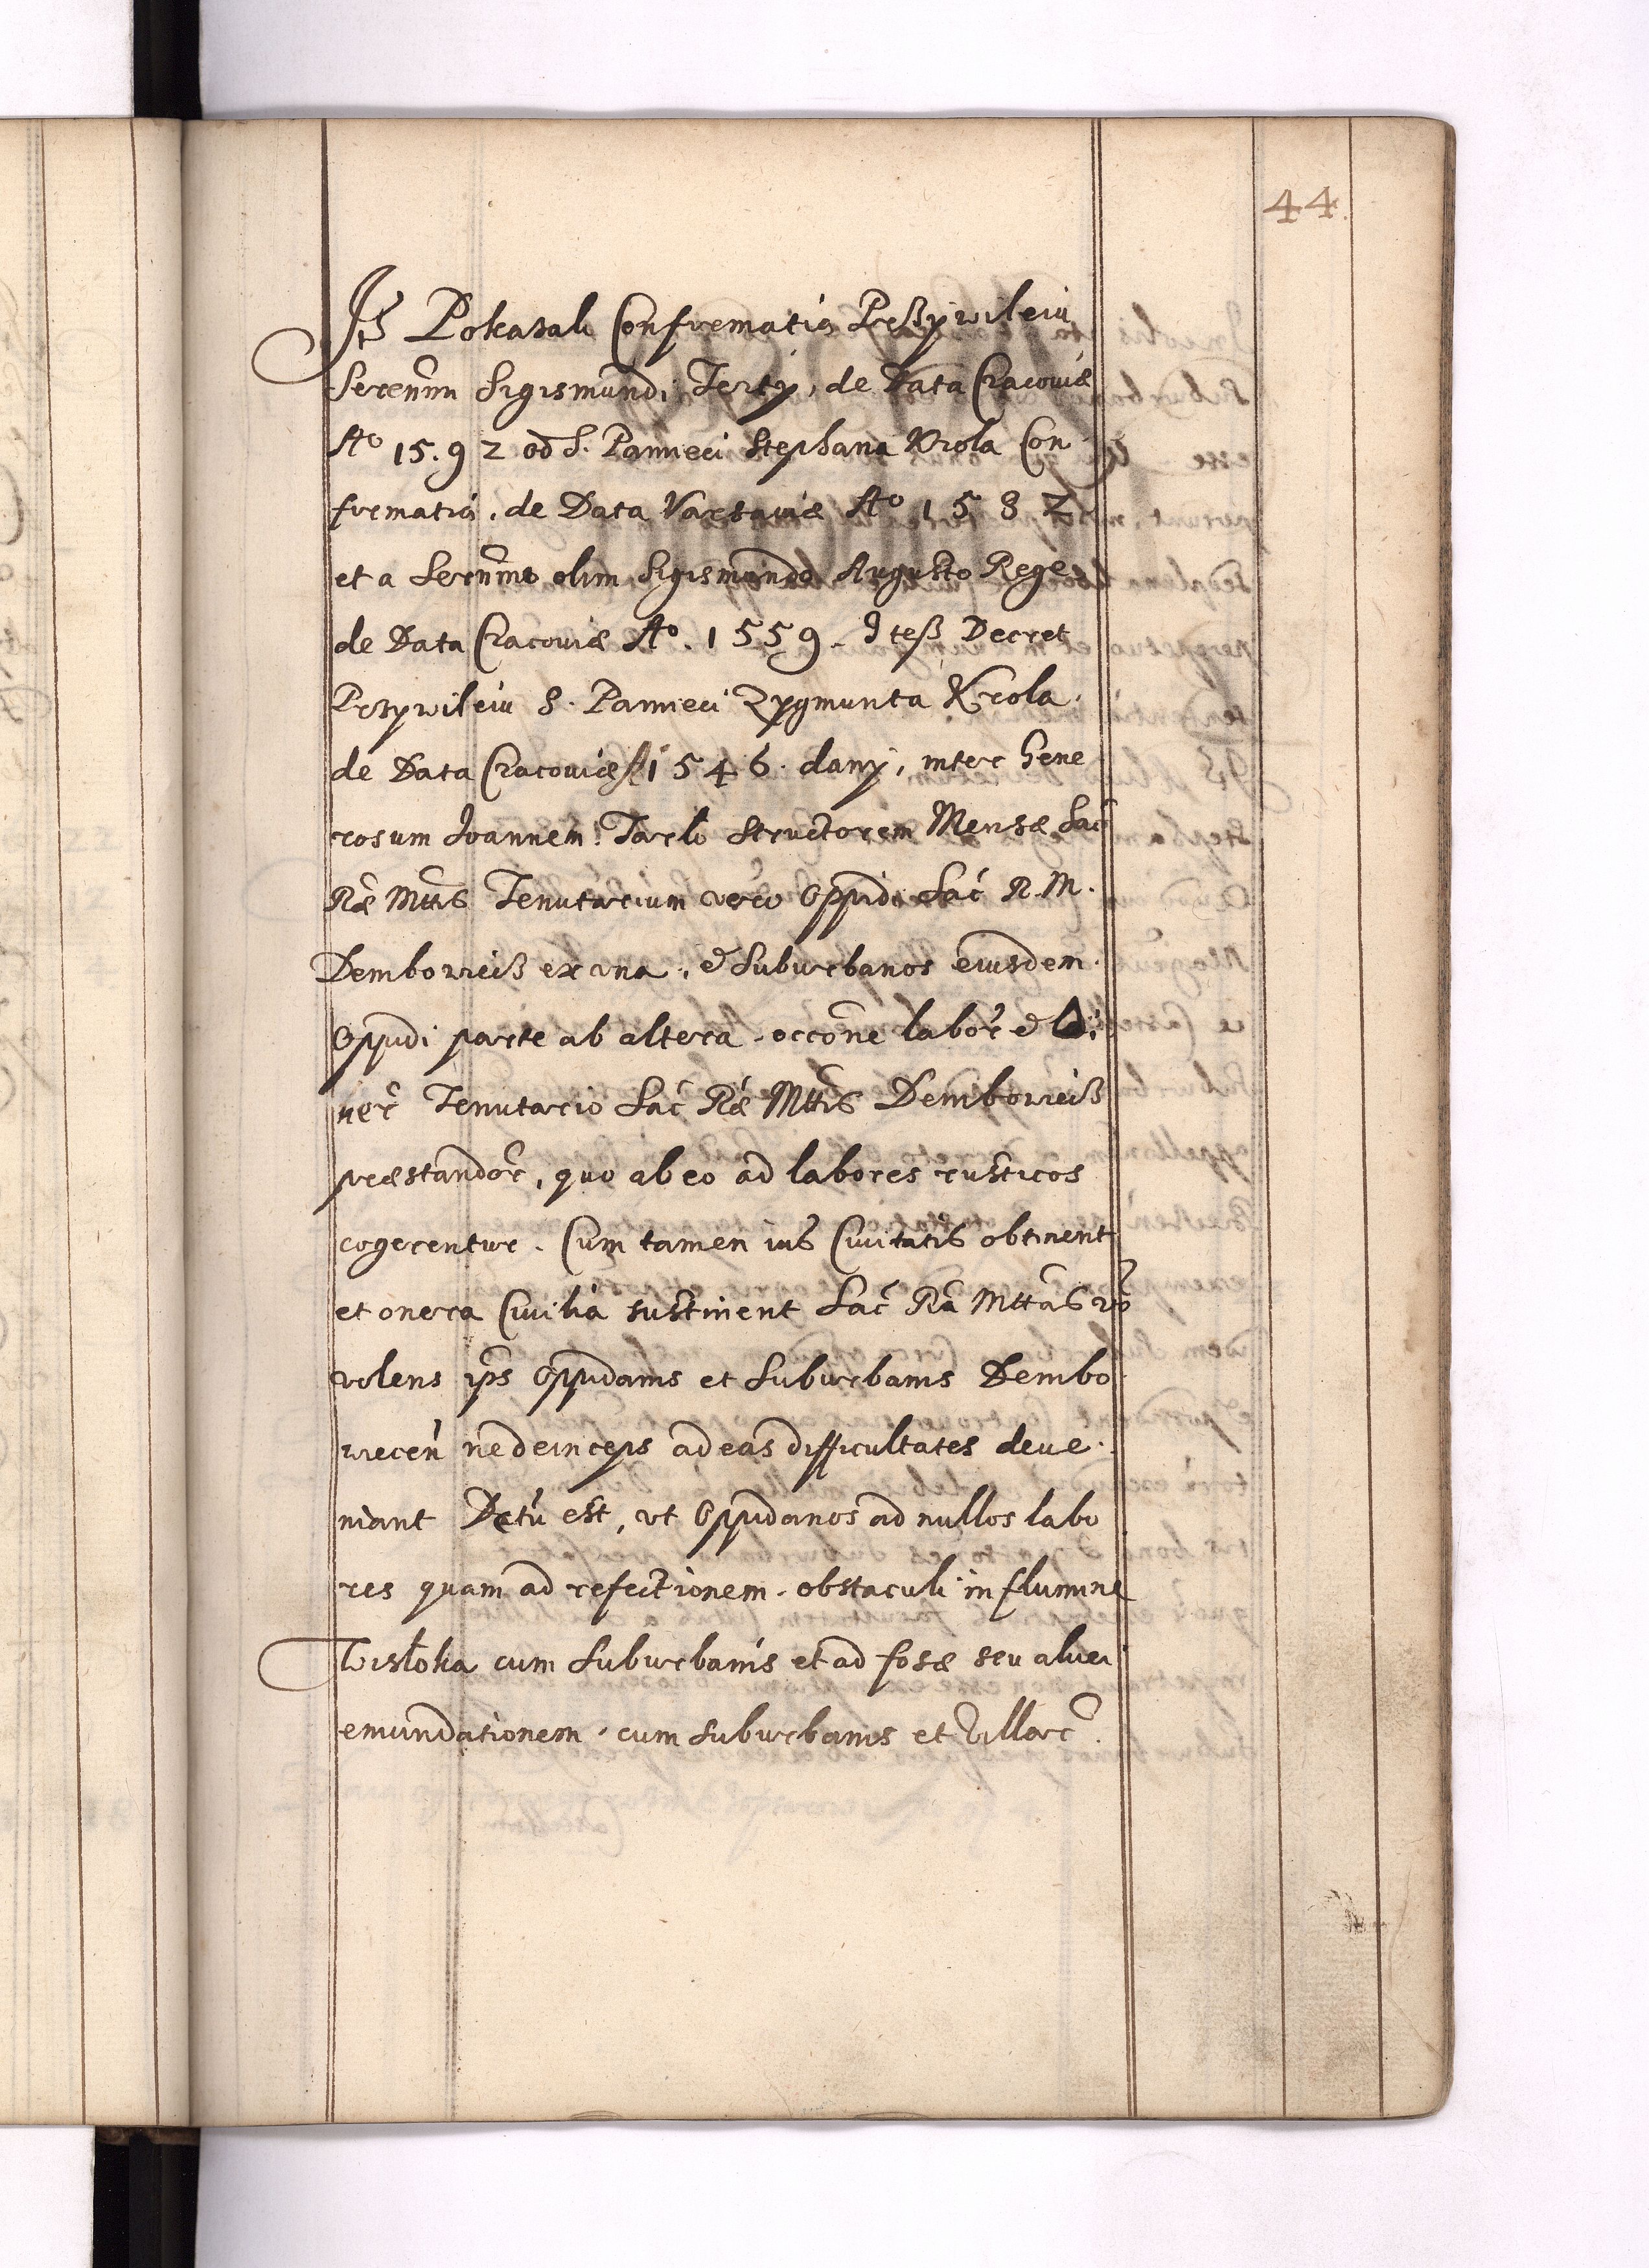 44.
Jtẽ Pokazali Confirmatią Przywileiu
Serenmi Sigismundi Tertÿ, de Data Cracouiæ
A° 15.92 od S. Pamieci Stephana Krola Con
firmatią. de Data Varsauiæ A° 1582
et a Serenmo olim Sigismundo Augusto Rege
de Data Cracouiæ A°. 1559. Jtesz Decret
Przywileiu S. Pamieci Zygmunta Krola.
de Data Cracouiæ 1546. dany, inter Gene
rosum Joannem Tarlo Structorem Mensæ Sac̃
Ræ Mttis Tenutarium vero Oppidi Sac̃ R. M.
Dembowiecz ex vna. & Suburbanos eiusdem.
Oppidi parte ab altera. occõne labor̃ &
ner̃ Tenutario Sac̃ Ræ Mttis Dembowiecz
præstandor̃, quo ab eo ad labores rusticos
cogerentur. Cum tamen ius Ciuitatis obtinent
et onera Ciuilia sustinent Sac̃ Ra Mttas vo
volens ips Oppidanis et Suburbanis Dembo
wiecen̄ ne deinceps ad eas difficultates deue.
niant Dctũ est, vt Oppidanos ad nullos labo
res quam ad refectionem. obstaculi in flumine
Wisłoka cum Suburbanis et ad fosæ seu aluei
emundationem. cum Suburbanis et Villar̃.